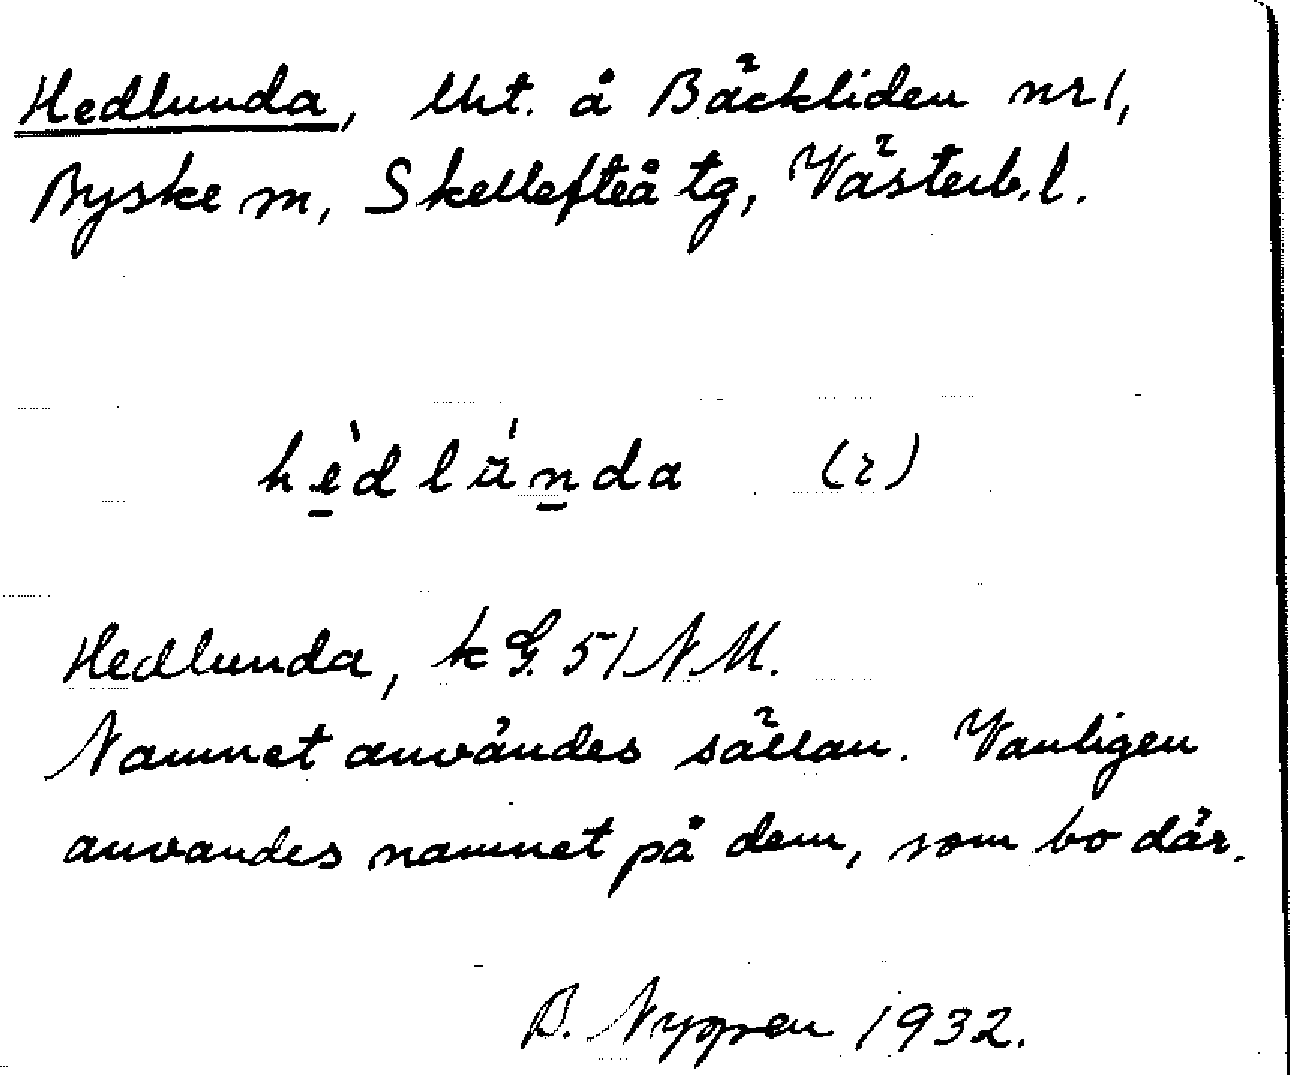 Hedlunda, lht. å Bäckliden nr 1,
Byske m, Skellefteå tg, Västerb. l.
hèdlúnda (r)
Hedlunda, k G. 51 N M.
Namnet användes sällan. Vanligen
anvandes namnet på dem, som bo där.
B. Nygren 1932.